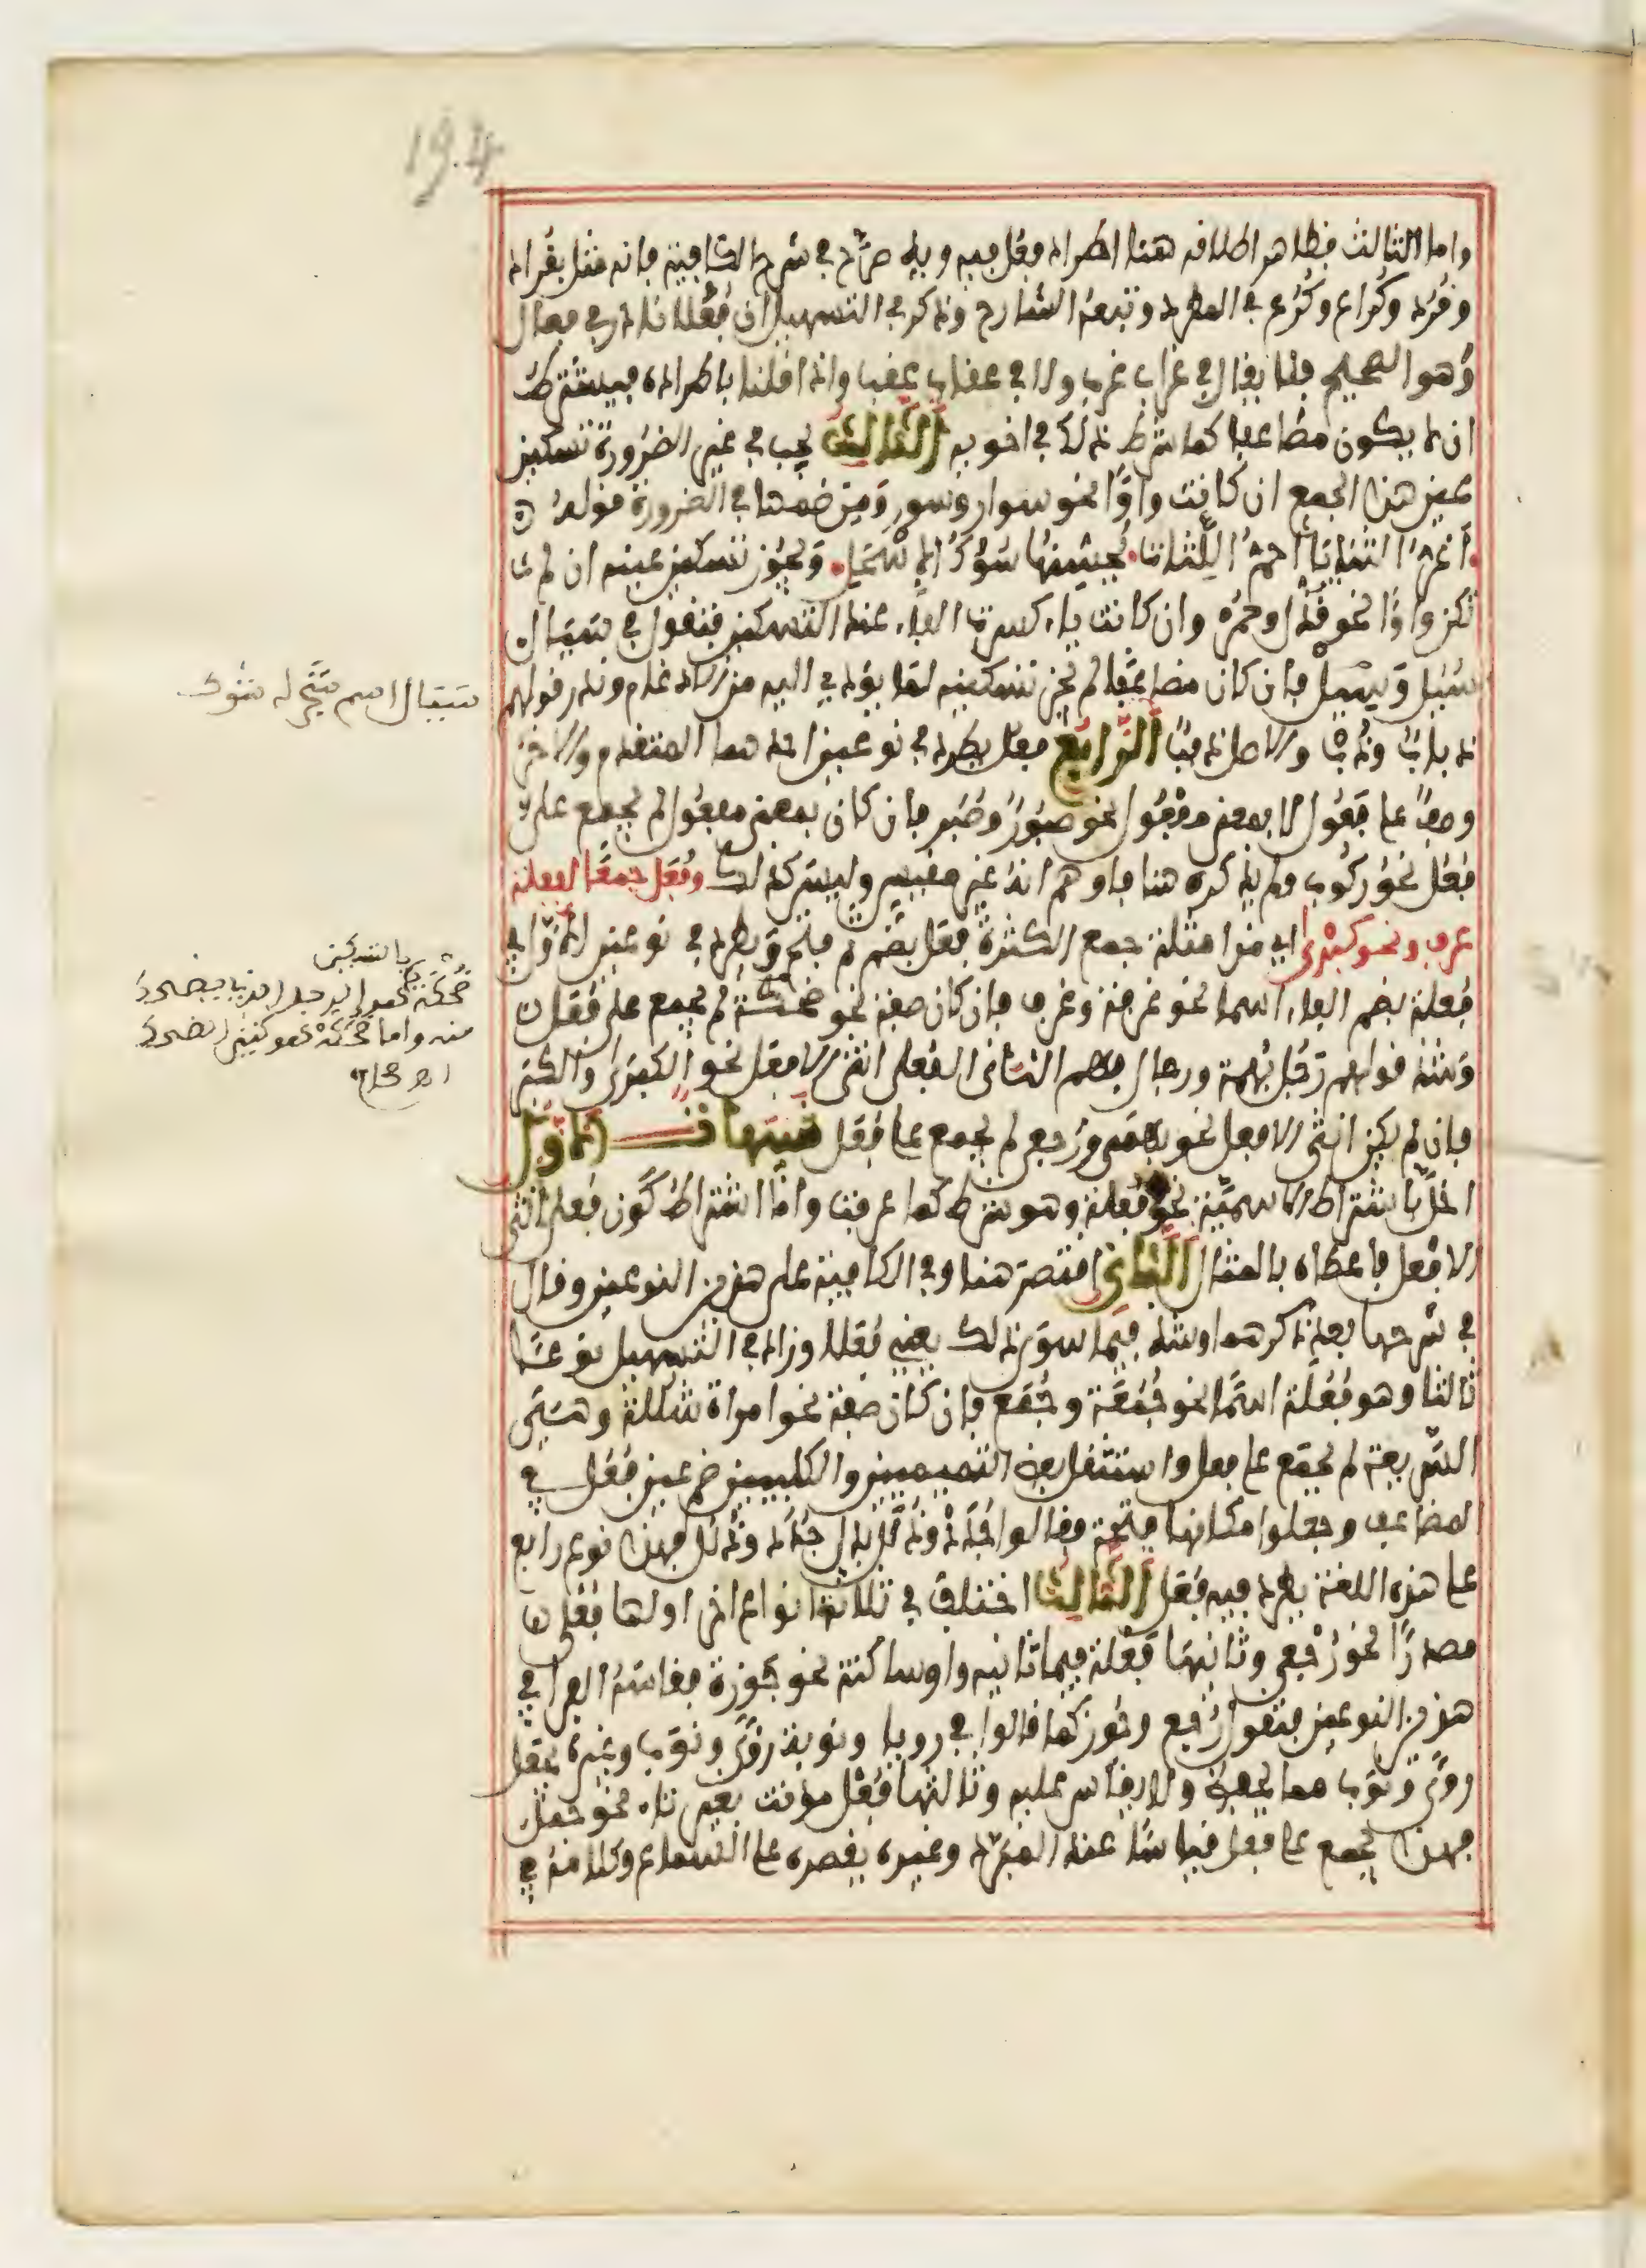 194
واما الثالث فظاهر اطلاقه هنا اطراد فعل فيه وبه صرّح في شرح الكافية فانه مثل بقراد
وقُرُد وكُراع وكُرُع في المطرد وتبعه الشارح وذكر في التسهيل ان فُعُلا نادر في فعال
وهو الصحيح فلا يقال في غراب غرب ولا في عقاب عقب واذا قلنا باطراده فيشترط
ان لا يكون مضاعفا كما شرط ذلك في اخويه الثَّالِث يجب في غير الضرورة تسكين
عين هذا الجمع ان كانت واوًا نحو سوار وسور ومن ضمها في الضرورة قوله
أغرّ الثنايا أحمّ اللِّثات يُحسّنها سُوُكُ الإسْحَل ويجوز تسكين عينه ان لم
تكن واوًا نحو قُذْل وحُمْر وان كانت ياء كسرت الفاء عند التسكين فتقول في سَيَال
سُيُل وَسِيْل فإن كان مضاعفا لم يجز تسكينه لما يؤدي اليه من الادغام وندر قولهم
ذباب وذُبّ والاصل ذببًا الرَّابِع فعل يطرد في نوعين احدهما المتقدم والاخر
وصفًا على فَعُول لا بمعنى مفعُول نحو صَبُور وصُبُر فان كان بمعنى مفعول لم يجمع على
فُعُل نحو رَكُوب ولم يذكره هنا فاوهم انه غير مقيس وليس كذلك وفُعَل جمعًا لفعلة
عرف ونحو كبرى اي من امثلة جمع الكثرة فعل بضم ثم فتح ويطرد في نوعين الاول في
فُعلة بضم الفاء اسما نحو غرفة وغرف فان كان صفة نحو ضحكة لم يجمع على فُعَل
وشذ قولهم رَجُل بُهمة ورجال بُهَم الثاني الفعلى انثى الافعل نحو الكبرى والكبر
فإن لم يكن انثى الافعل نحو بهمى ورجعى لم يجمع على فُعَل تنبيهات الأوّل
اخلّ باشتراط الاسميّة نحو فُعلة وهو شرط كما عرفت وامّا اشتراط كون فعلى انثى
الافعل فأعطاه بالمثال الثَّانِي اقتصر هنا وفي الكافية على هذين النوعين وقال
في شرحها بعد ذكرهما وشذ فيما سوى ذلك يعني فُعَلا وزاد في التسهيل نوعًا
ثالثا وهو فُعُلَة اسمًا نحو جُمُعَة وجُمَع فإن كان صفة نحو امراة شُلُلة وهي
السَّريعة لم يجمع على فعل واستثقل بعض التميميين والكلبيين ضم عين فُعُل في
المضاعف وجعلوا مكانها فتحة فقالوا جُدَد وذُلَل بدل جُدُد وذُلُل فهذا نوع رابع
على هذه اللغة يطرد فيه فُعَل الثَّالِث اختلف في ثلاثة انواع اخر اولها فُعْلى
مصدرًا نحو رُجعى وثانيها فَعْلة فيما ثانيه واو ساكنة نحو جَوزة فقاسه الفراء في
هذين النوعين فتقول رُجَع وجُوَز كما قالوا في رويا ونوبة رُؤًى ونُوَب وغيره يجعل
رؤًى ونُوَب مما يحفظ ولا يقاس عليه وثالثها فُعْل مؤنث بغير تاء نحو جُمل
فهذا يجمع على فعل قياسًا عند المبرّد وغيره يقصره على السماع وكلامه في
سَيَال اسم شجر له شوك
ضُحْكة بالتسكين
هو الرجل الذي يضحك
منه واما ضُحَكَة فهو كثير الضحك